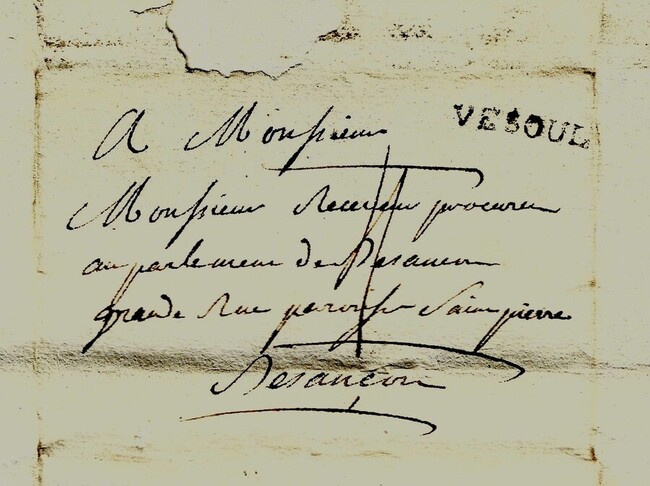 VESOUL
A Monsieur
Monsieur Receveur procureur
au parlement de Besancon
grande Rue paroisse Saint pierre
Besançon